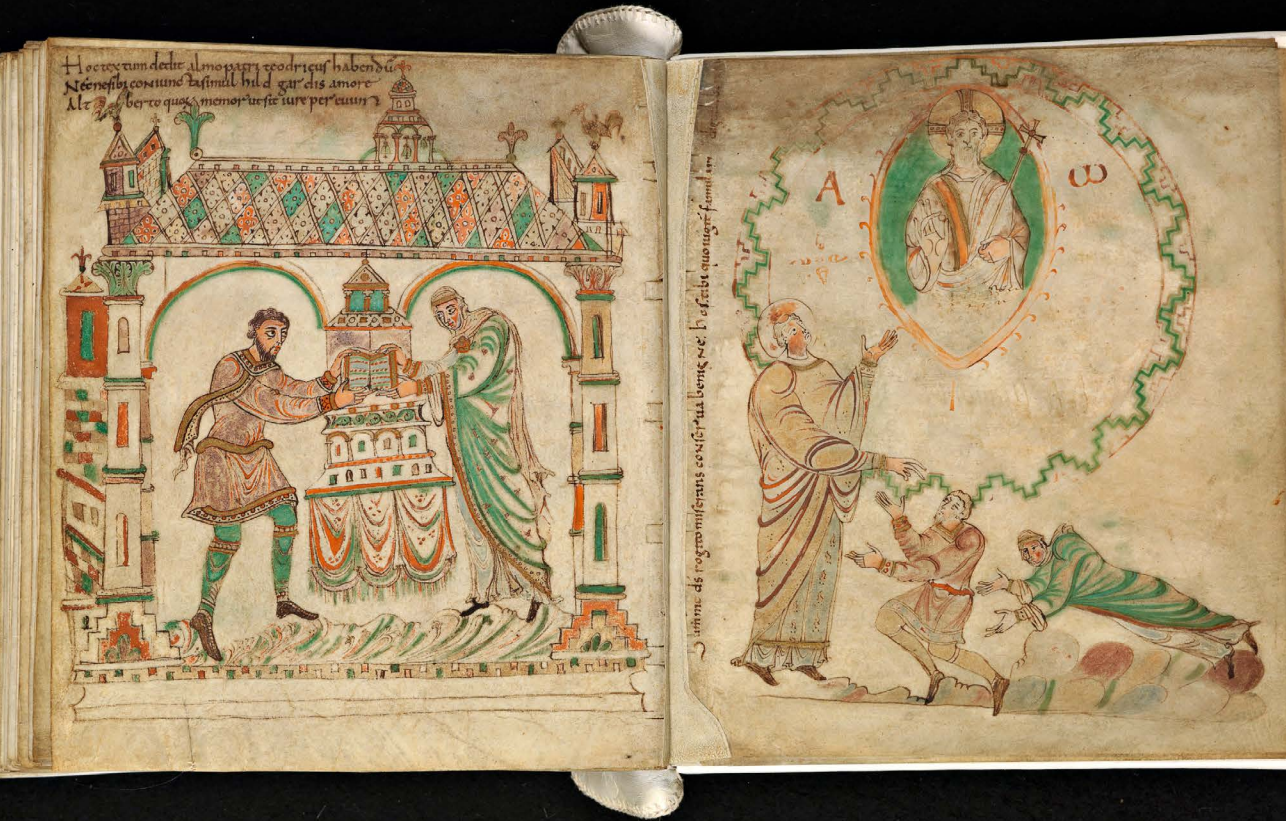 Hoc textum dedit almo patri teodricus habendū
Necnesibi coniuncta simul hildgardis amore
Altberto quoq; memor ut sit iure per evum
A ω
summe ds rogito miserans conserua benigne hos tibi quo uigeat famulari